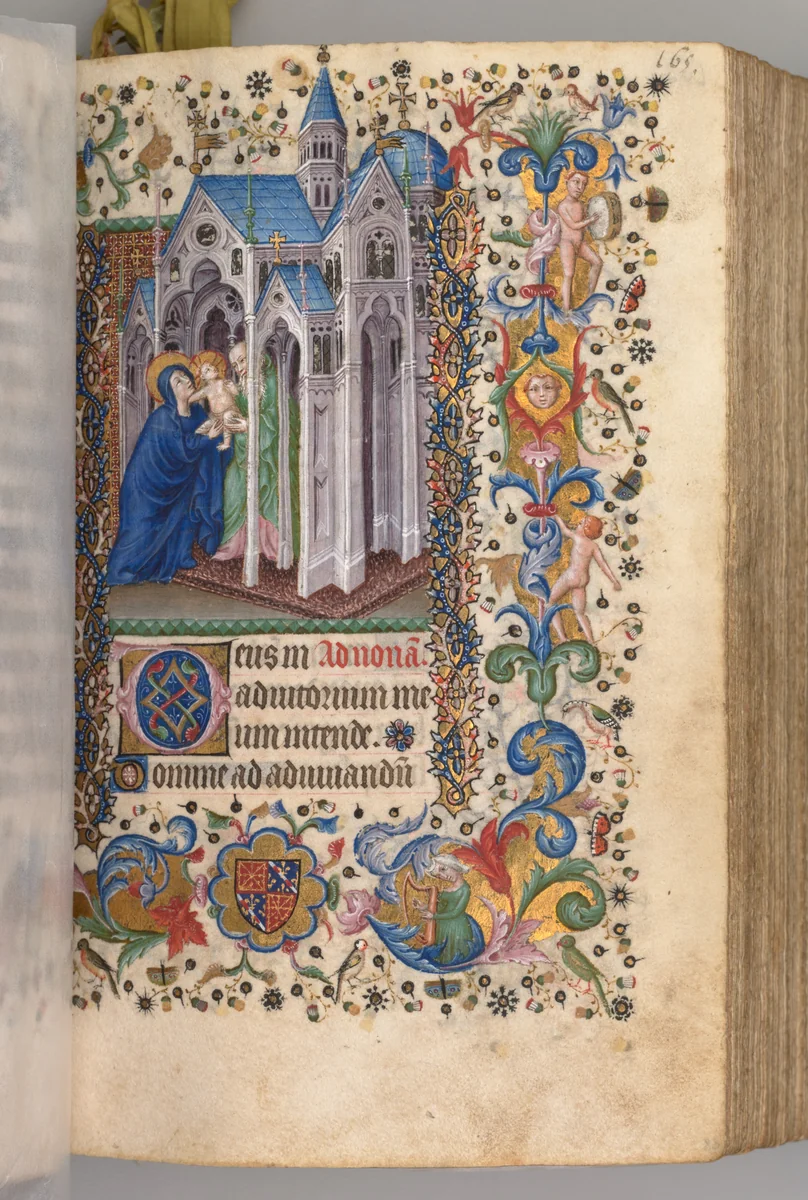 165.
Deus in Ad nonā.
adiutorium me
um intende.
Domine ad adiuuandū